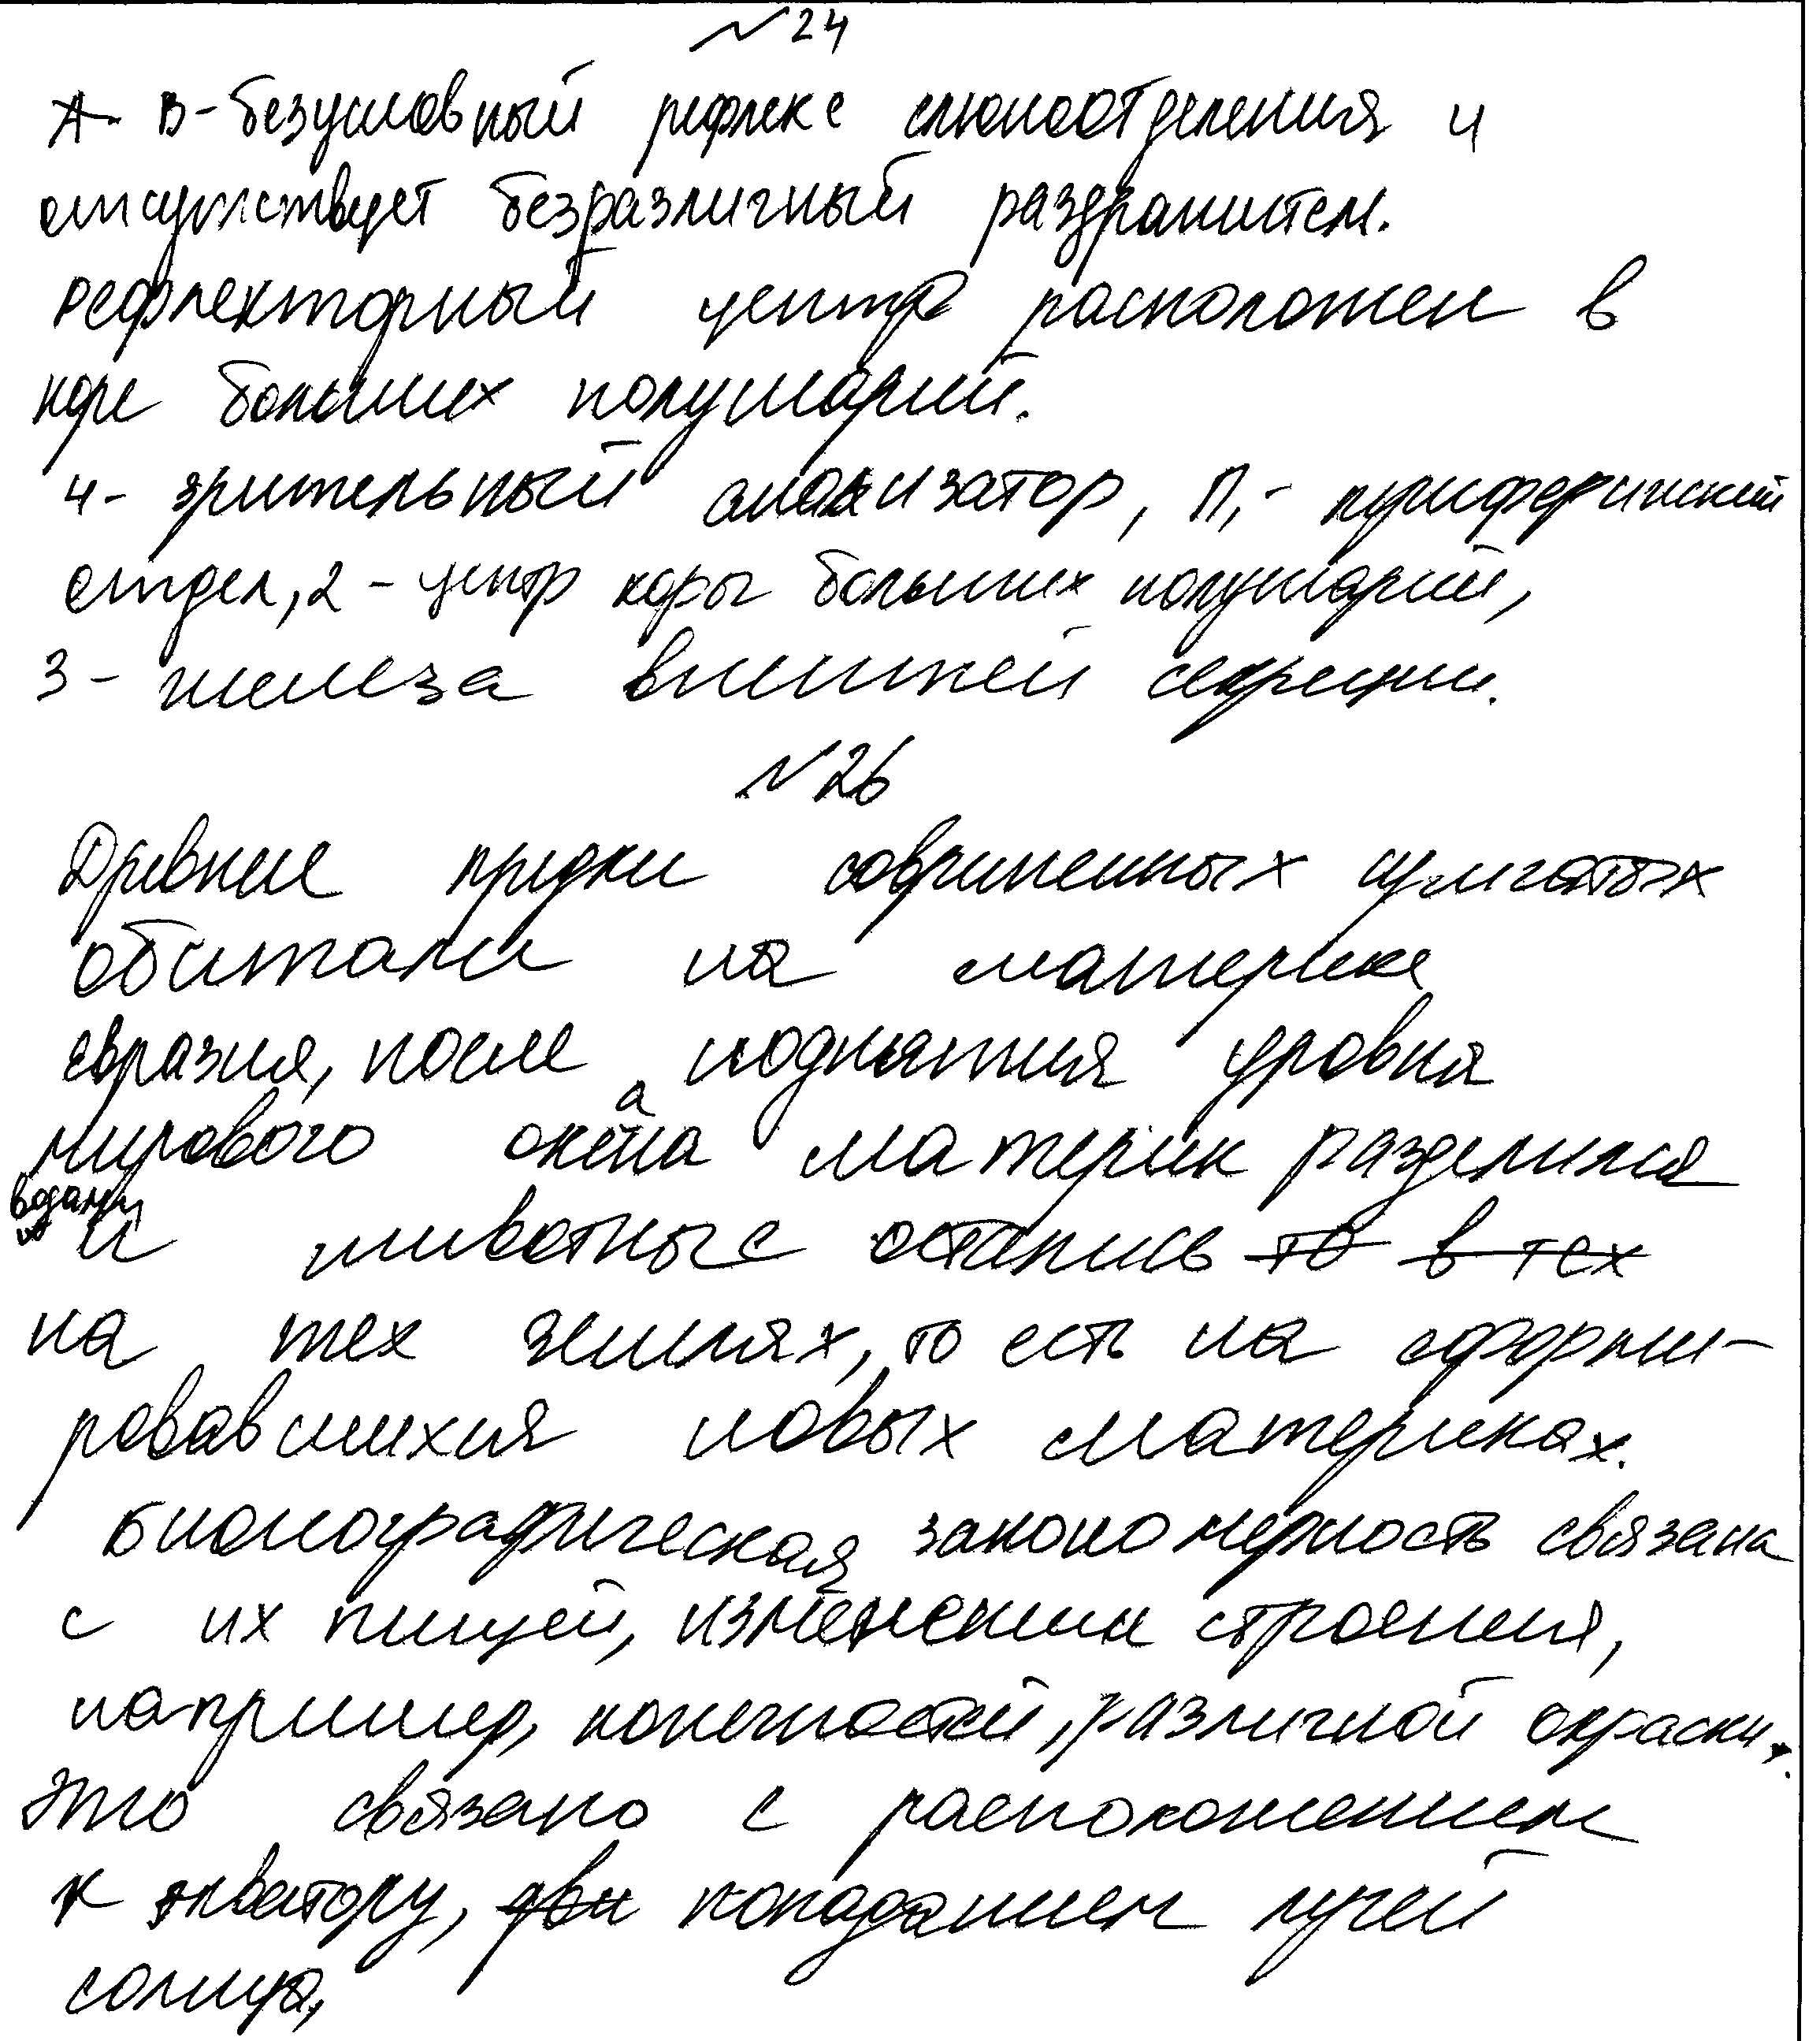 №24
А- В-безусловный рефлекс слюноотделения и
отсутствует безразличный раздражитель.
Рефлекторный центр расположен в
коре больших полушарий.
4- зрительный анализатор, П,- периферический
отдел, 2 - центр коры больших полушарий,
3- железа внешней секреции.
№26
Древние предки современных чешуйчатых
обитали на материке
евразия, после поднятия уровня
мирового океана материк разделился
водами и животные остались то в тех
на тех землях, то есть на сформи-
ровавшихся новых материках.
Биогеографическая закономерность связана
с их пищей, изменении строения,
например, конечностей, различной окраски.
Это связано с расположением
к экватору, попаданием лучей
солнца,